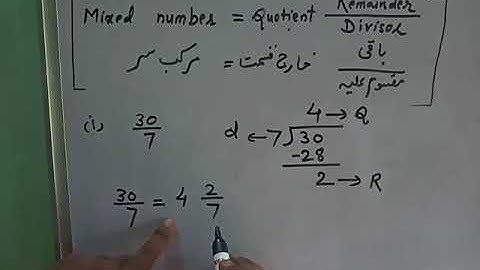 Mixed number = Quotient Remainder/Divisor
مرکب سر = خارج قسمت باقی/مقسوم علیہ
(i) 30/7
4 → Q
d ← 7) 30
-28
2 → R
30/7 = 4 2/7